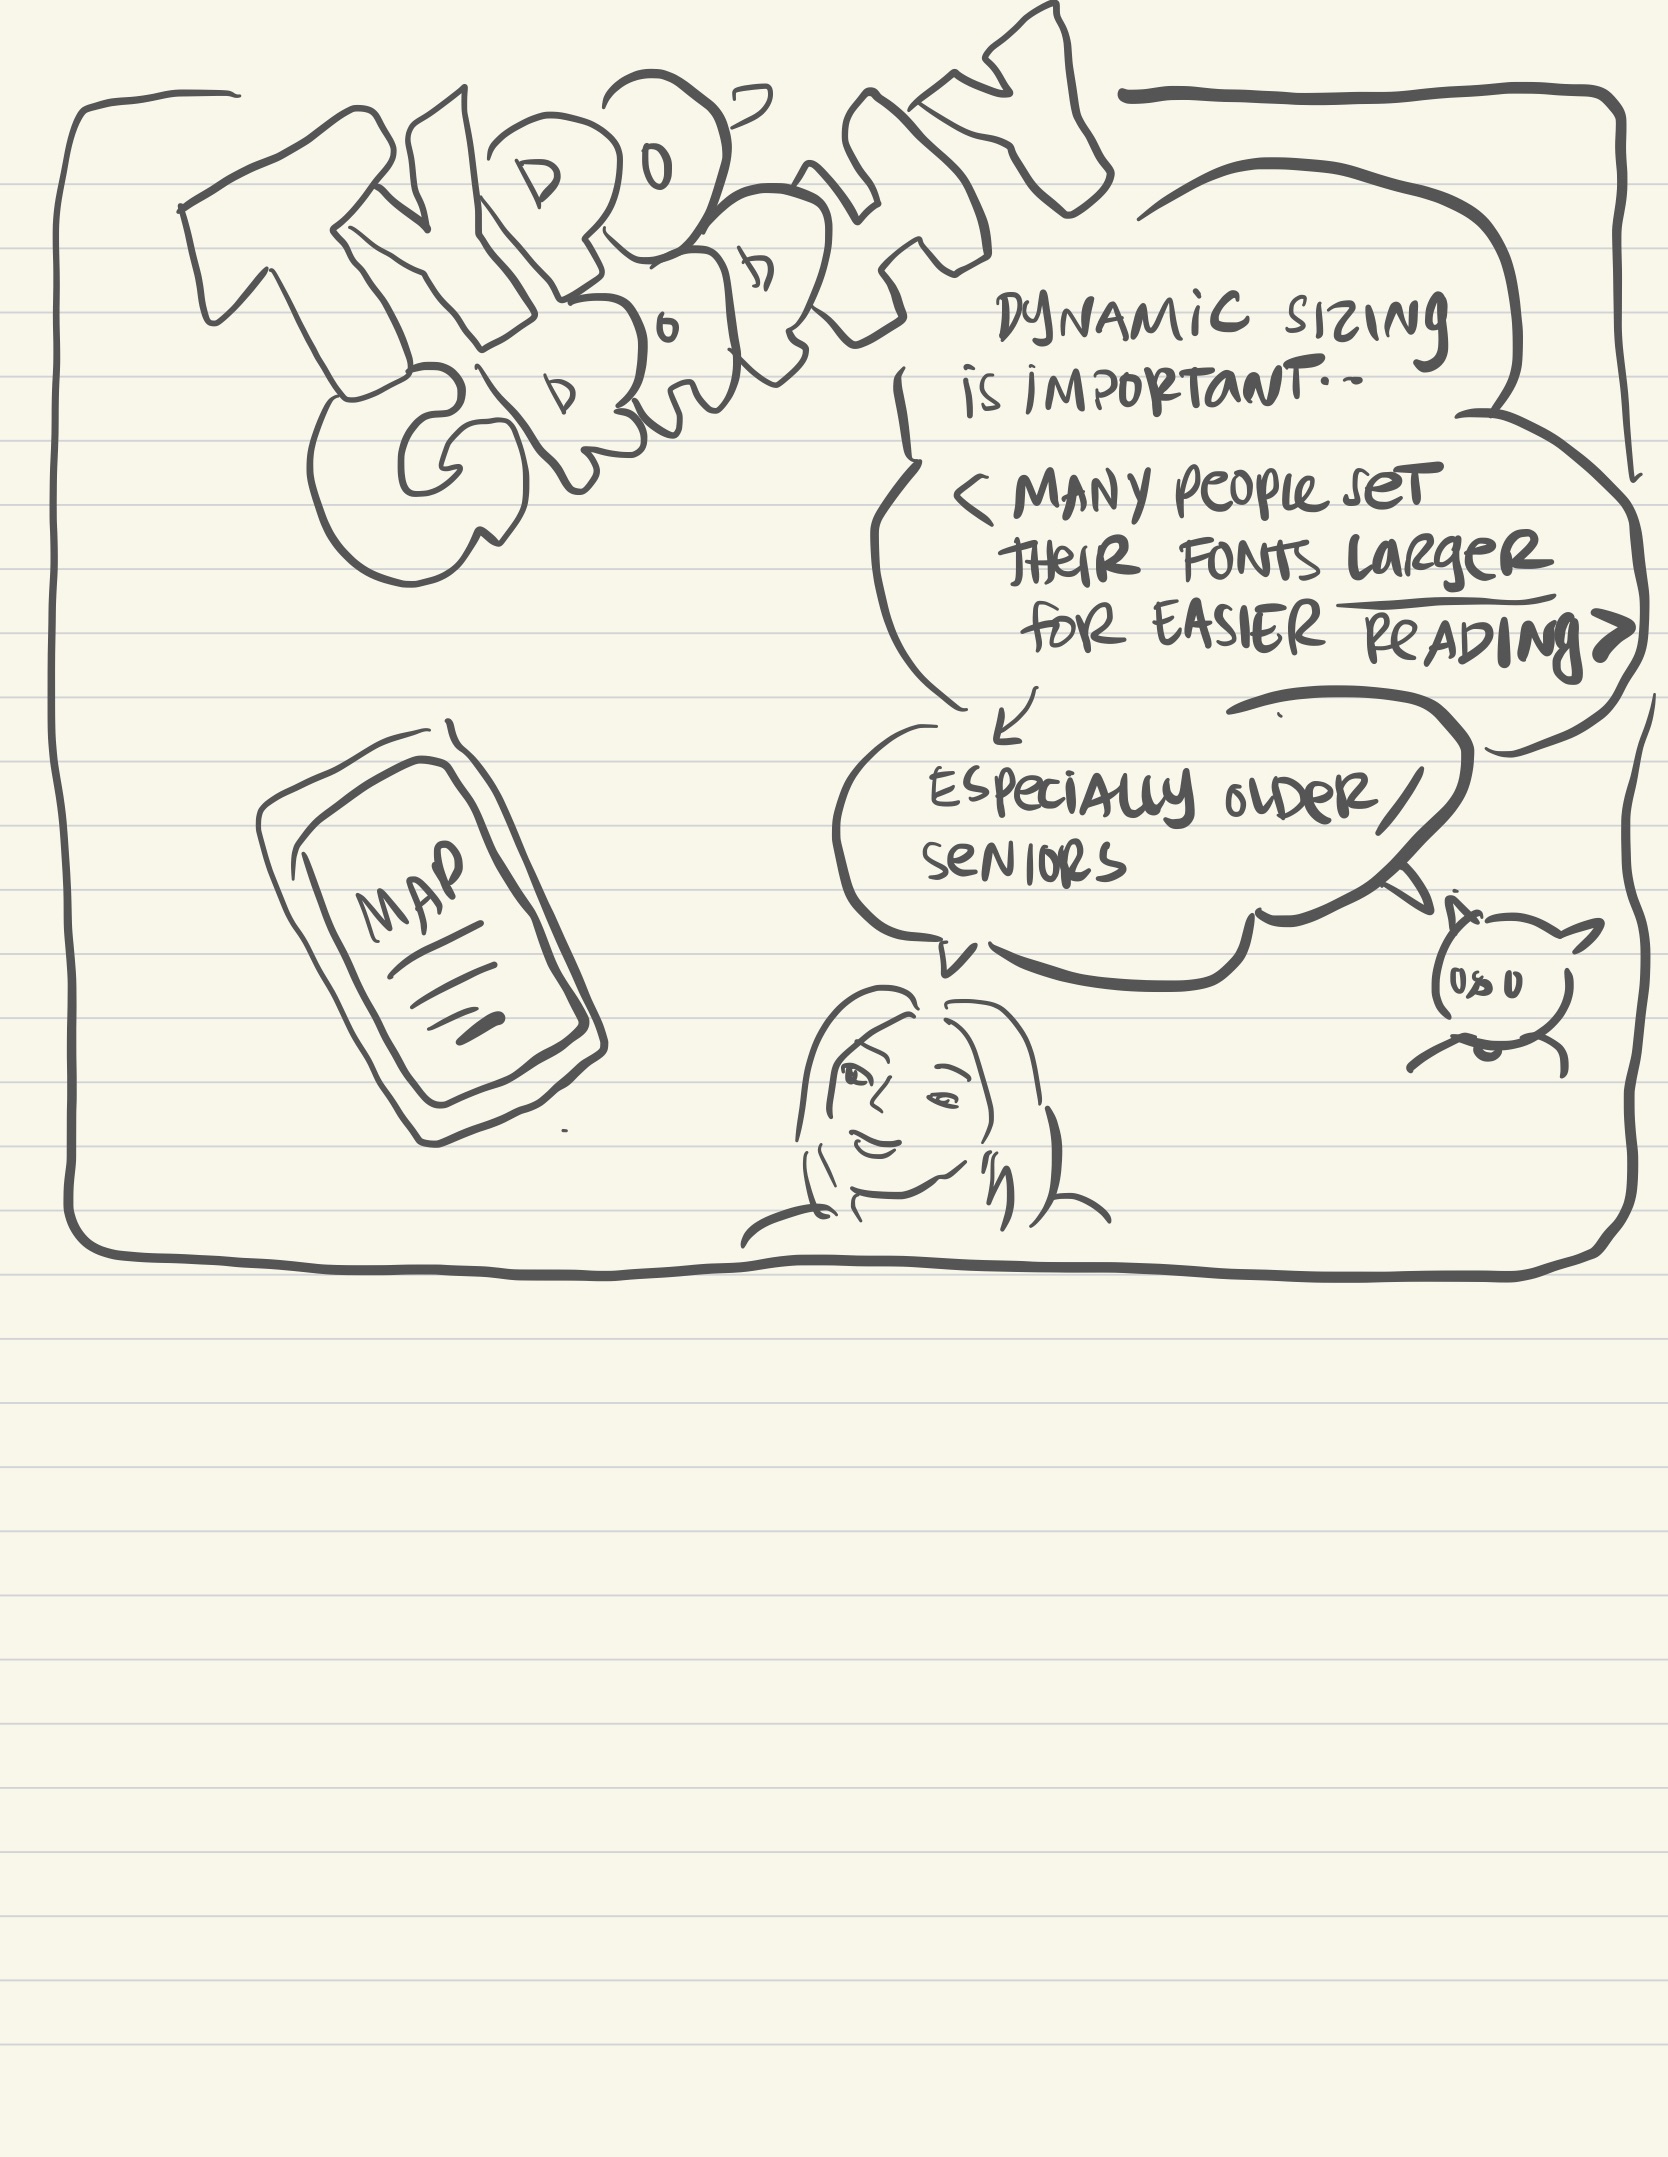 TYPO
GRAPHY
DYNAMIC SIZING
IS IMPORTANT...
< MANY PEOPLE SET
THEIR FONTS LARGER
FOR EASIER READING >
ESPECIALLY OLDER
SENIORS
MAP